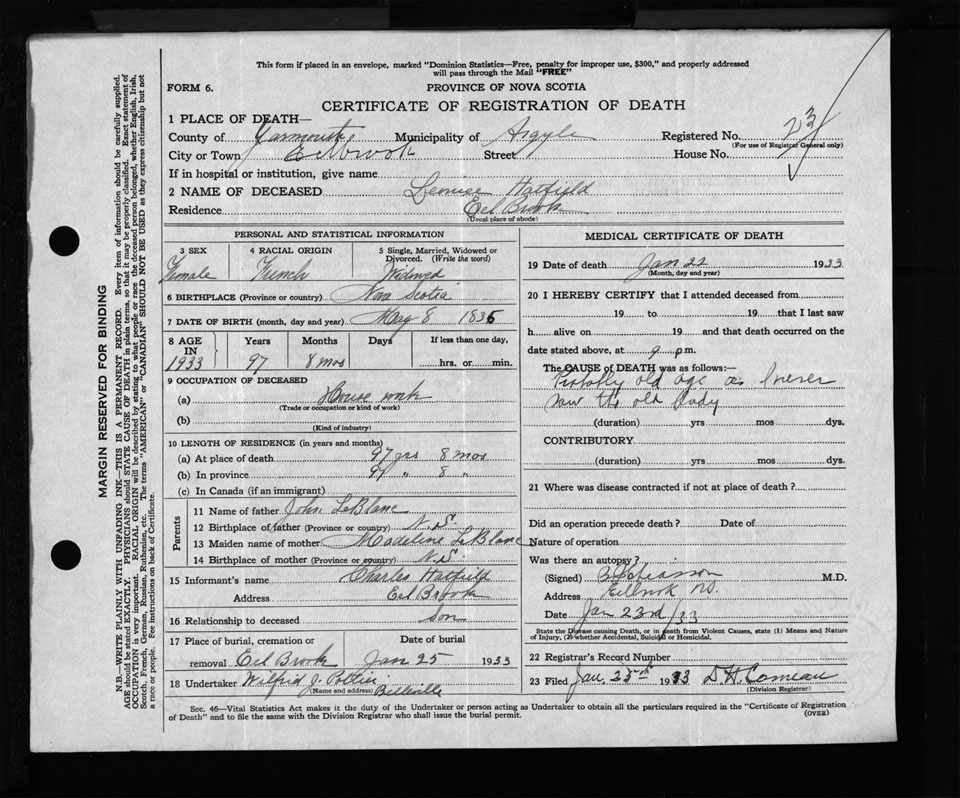 This form if placed in an envelope, marked "Dominion Statistics—Free, penalty for improper use, $300," and properly addressed
will pass through the Mail "FREE"
FORM 6.
PROVINCE OF NOVA SCOTIA
CERTIFICATE OF REGISTRATION OF DEATH
1 PLACE OF DEATH—
County of Yarmouth Municipality of Argyle Registered No. 23
(For use of Registrar General only)
City or Town Eelbrook Street House No.
If in hospital or institution, give name
2 NAME OF DECEASED Hatfield
Residence Eel Brook
(Usual place of abode)
PERSONAL AND STATISTICAL INFORMATION
3 SEX 4 RACIAL ORIGIN 5 Single, Married, Widowed or Divorced. (Write the word)
Female French Widowed
6 BIRTHPLACE (Province or country) Nova Scotia
7 DATE OF BIRTH (month, day and year) May 8 1835
8 AGE IN Years Months Days If less than one day,
1933 97 8 mos hrs. or min.
9 OCCUPATION OF DECEASED
(a) House work
(Trade or occupation or kind of work)
(b)
(Kind of industry)
10 LENGTH OF RESIDENCE (in years and months)
(a) At place of death 97 yrs 8 mos
(b) In province 97 " 8 "
(c) In Canada (if an immigrant)
Parents
11 Name of father John LeBlanc
12 Birthplace of father (Province or country) N.S.
13 Maiden name of mother Madeline LeBlanc
14 Birthplace of mother (Province or country) N.S
15 Informant's name Charles Hatfield
Address Eel Brook
16 Relationship to deceased Son
17 Place of burial, cremation or Date of burial
removal Eel Brook Jan 25 1933
18 Undertaker Wilfrid J. Pottier
(Name and address) Belleville
MEDICAL CERTIFICATE OF DEATH
19 Date of death Jan 22 1933
(Month, day and year)
20 I HEREBY CERTIFY that I attended deceased from
19 to 19 that I last saw
h alive on 19 and that death occurred on
date stated above, at 9 p.m.
The CAUSE of DEATH was as follows:—
Probably old age as I never
saw the old lady
(duration) yrs mos dys.
CONTRIBUTORY
(duration) yrs mos dys.
21 Where was disease contracted if not at place of death?
Did an operation precede death? Date of
Nature of operation
Was there an autopsy?
(Signed) M.D.
Address Eelbrook N.S.
Date Jan 23rd/33
State the Disease causing Death, or in death from Violent Causes, state (1) Means and Nature
of Injury, (2) whether Accidental, Suicidal or Homicidal.
22 Registrar's Record Number
23 Filed Jan. 25th 1933 D.H. Comeau
(Division Registrar)
Sec. 46—Vital Statistics Act makes it the duty of the Undertaker or person acting as Undertaker to obtain all the particulars required in the "Certificate of Registration
of Death" and to file the same with the Division Registrar who shall issue the burial permit.
(OVER)
MARGIN RESERVED FOR BINDING
N.B.—WRITE PLAINLY WITH UNFADING INK—THIS IS A PERMANENT RECORD. Every item of information should be carefully supplied.
AGE should be stated EXACTLY. PHYSICIANS should STATE CAUSE OF DEATH in plain terms, so that it may be properly classified. Exact statement of
OCCUPATION is very important. RACIAL ORIGIN will be described by stating to what people or race the deceased person belonged, whether English, Irish,
Scotch, French, German, Russian, Ruthenian, etc. The terms "AMERICAN" or "CANADIAN" SHOULD NOT BE USED as they express citizenship but not
a race or people. See instructions on back of Certificate.